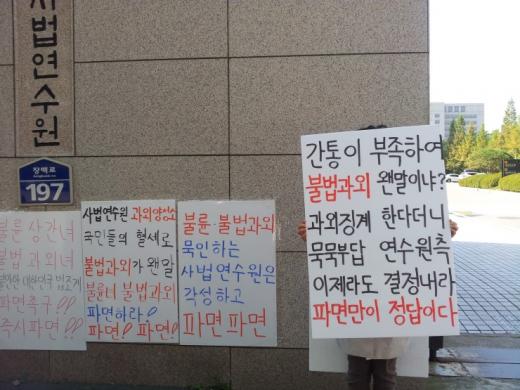 사법연수원
장백로
197
불륜 상간녀
불법 과외녀
대한민국 법조계
파면촉구!!
즉시파면!!
사법연수원 과외양성소
국민들의 혈세로
불법과외가 왠말
불륜녀 불법과외
파면하라!
파면! 파면!
불륜·불법과외
묵인하는
사법연수원은
각성하고
파면 파면
간통이 부족하여
불법과외 왠말이냐?
과외징계 한다더니
묵묵부답 연수원측
이제라도 결정내라
파면만이 정답이다